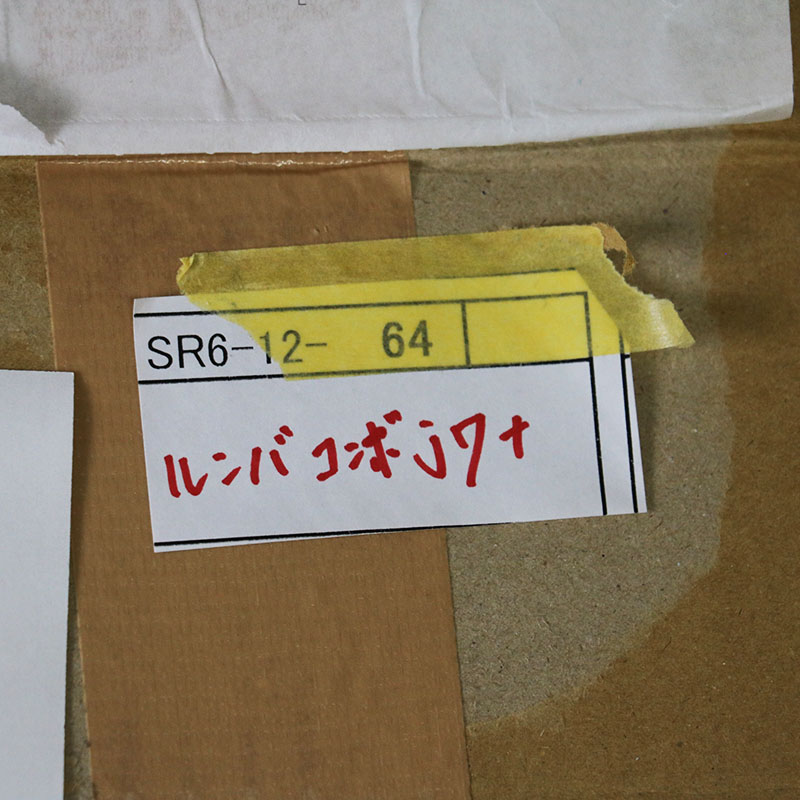 SR6-12- 64
ルンバ コンボ j7+